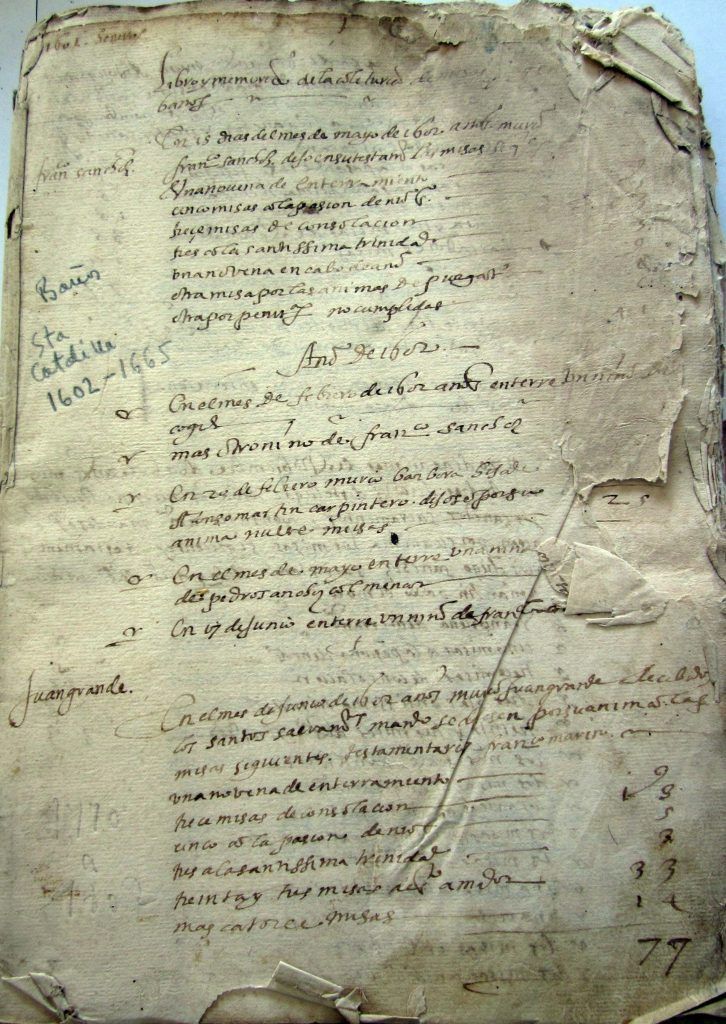 1601.
Libro y memoria de la coleturia de
baños
En 15 dias del mes de mayo de 1602 años murio
fran^co sanchez. dejo en su testam^to las misas
fran^co sanchez
Una novena de enterramiento
cinco misas a la pasion de
treçe misas de consolacion
tres a la santissima trinidad
una novena en cabo de año
otra misa por las animas de purgat^o
otra por penit^a no cumplidas
Baños
Sta
Catalina
1602-1665
Año de 1602
En el mes de febrero de 1602 años enterre un niño de
mas otro niño de fran^co sanchez
En 29 de febrero murio barbara hija de
martin carpintero. dejose por su
anima nueve misas
25
En el mes de mayo enterre un niño
de pedro
En 17 de junio enterre un niño de fran^co
Juan grande.
En el mes de junio de 1602 años murio Juan grande recibido
los santos mando se digesen por su anima las
misas siguientes. testamentario franco marin
una novena de enterramiento 9
trece misas de consolacion 13
cinco a la pasion de 5
tres a la santissima trinidad 3
treinta y tres misas de s^t amador 33
mas catorce misas 14
77